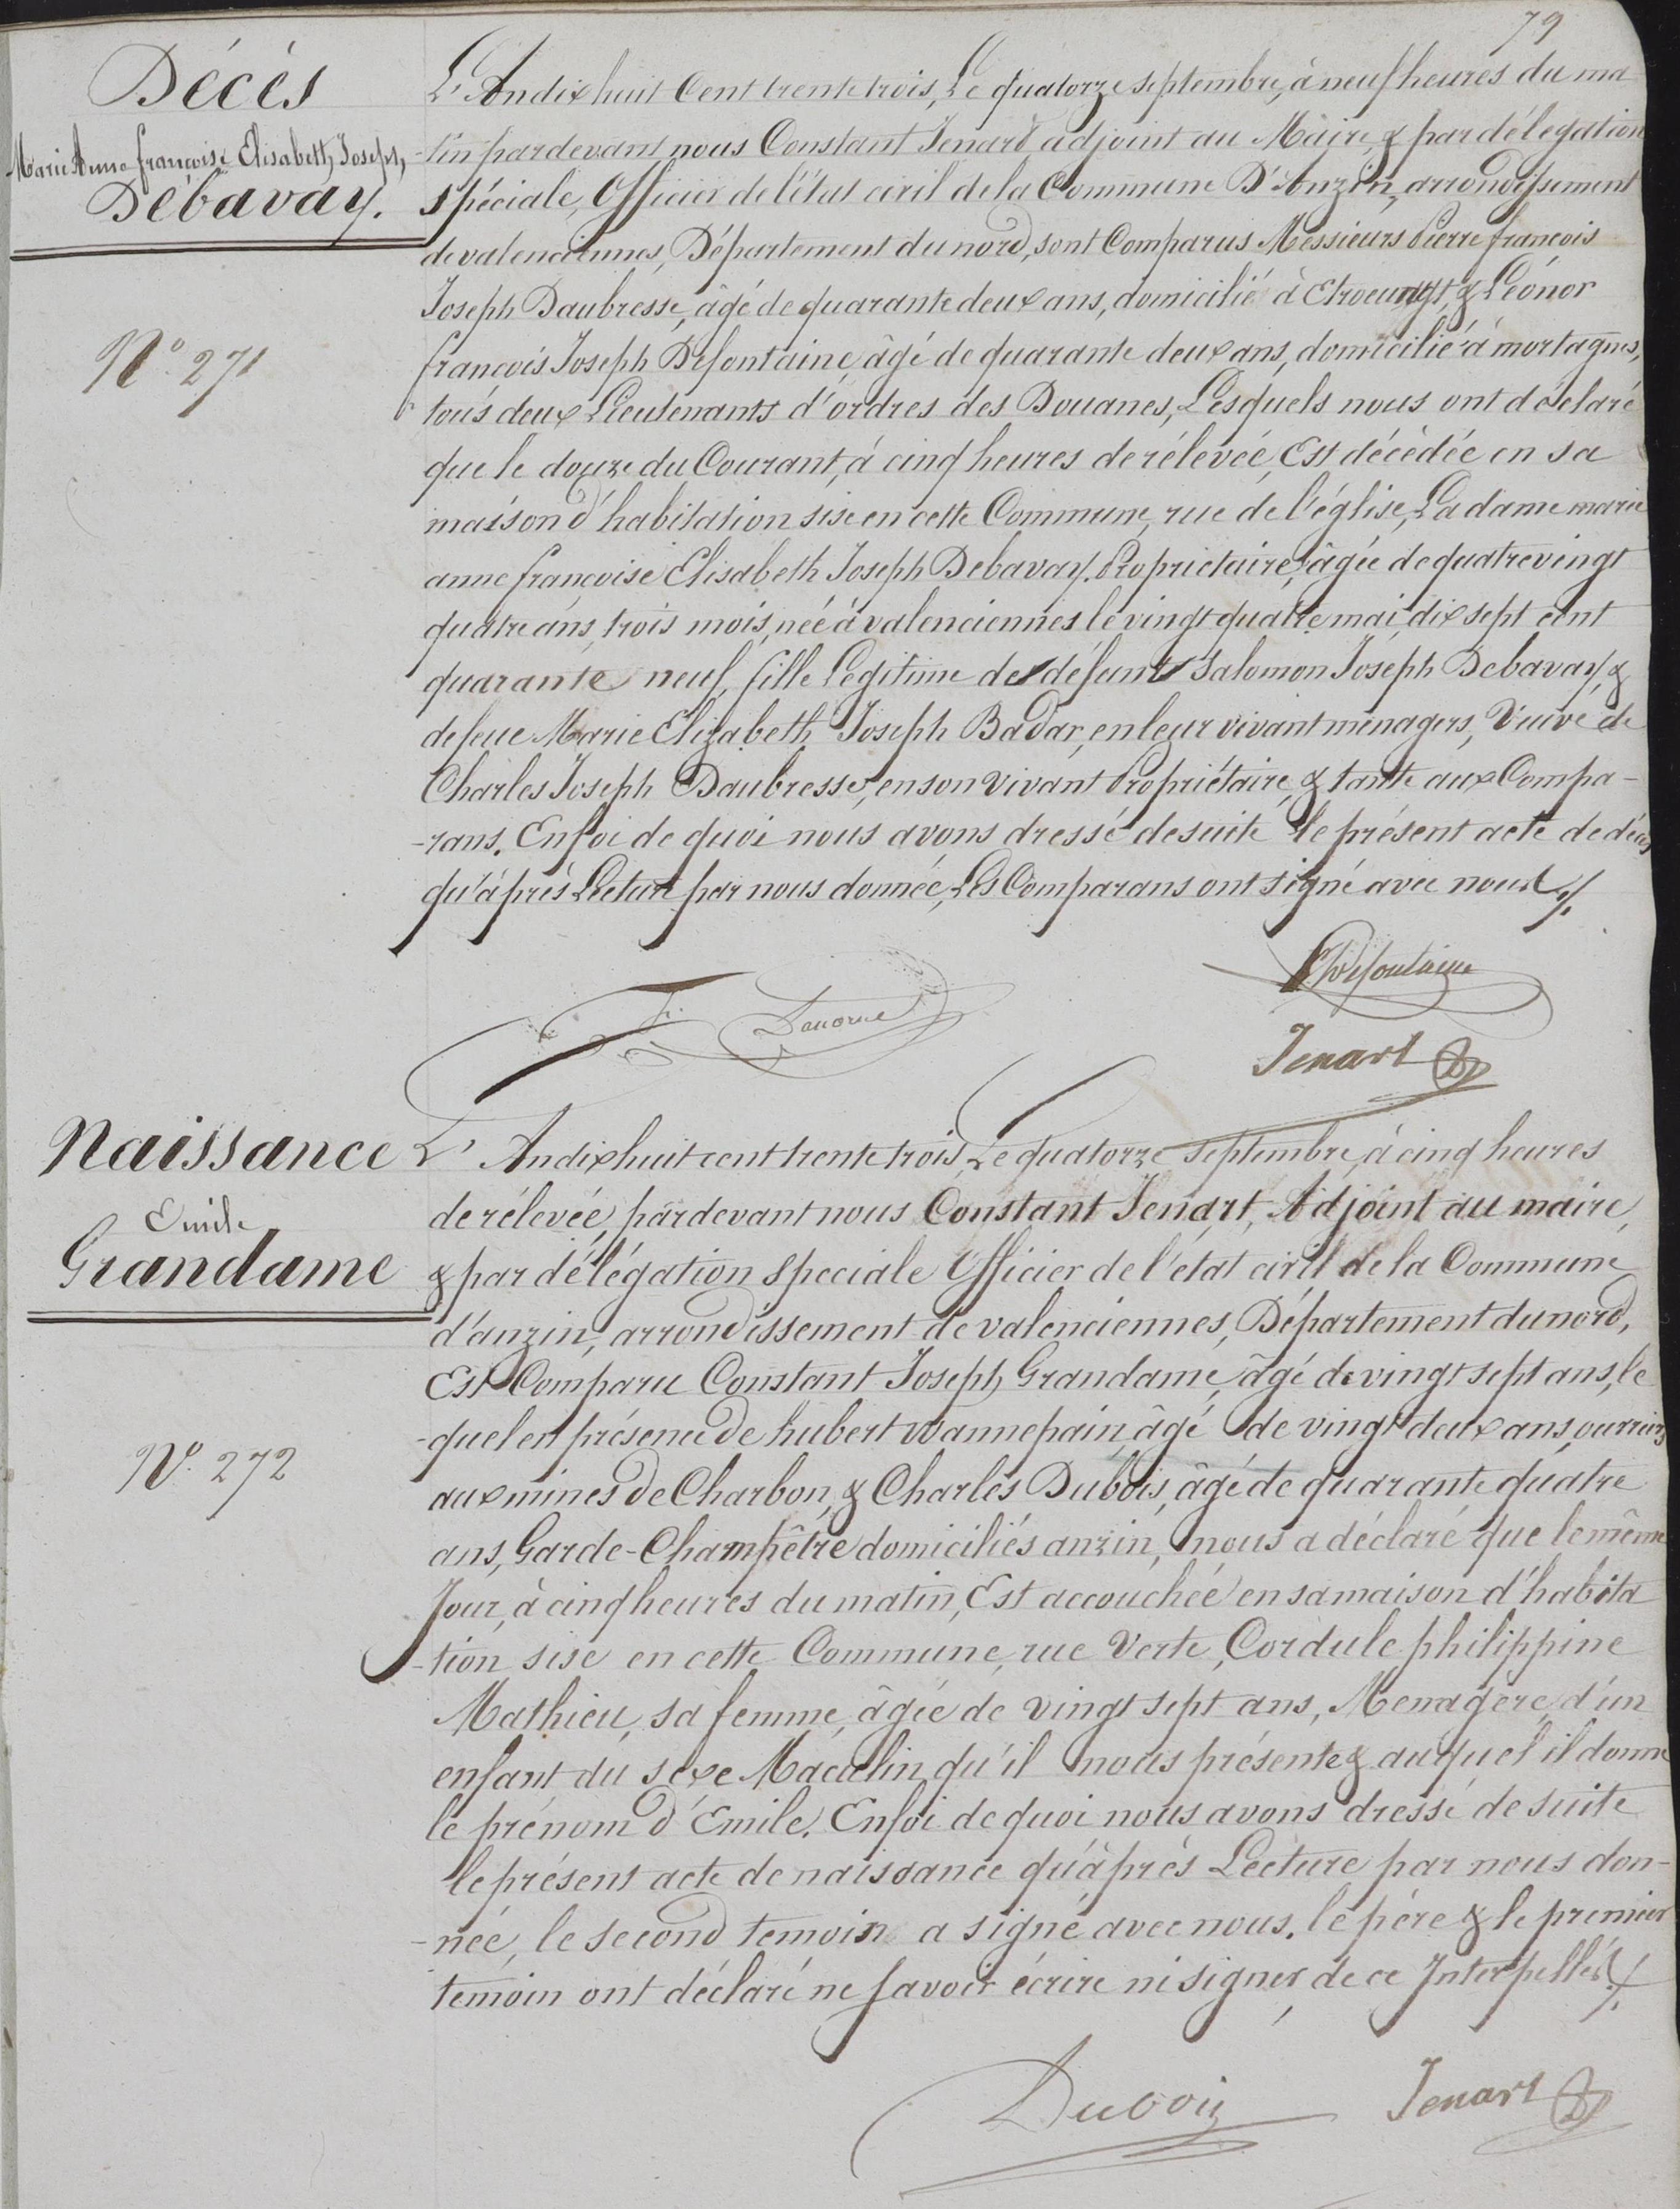 79
Décès
Marie Anne françoise Elisabeth Joseph
Débavay.
N° 271
L'An dix huit Cent trente trois, Le quatorze septembre, à neuf heures du ma
-tin pardevant nous Constant Jenart adjoint au Maire, & par délégation
spéciale, Officier de l'état civil de la Commune D'Anzin, arrondissement
de valenciennes, Département du nord, sont Comparus Messieurs Pierre françois
Joseph Daubresse, âgé de quarante deux ans, domicilié à Etroeungt, & Léonor
françois Joseph Defontaine, âgé de quarante deux ans, domicilié à mortagnes,
tous deux Lieutenants d'ordres des Douanes, Lesquels nous ont déclaré
que le douze du Courant, à cinq heures de rélevée, Est décédée en sa
maison d'habitation sise en cette Commune, rue de l'église, La dame marie
anne françoise Elisabeth Joseph Debavay. Propriétaire, âgée de quatre vingt
quatre ans, trois mois, née à valenciennes le vingt quatre mai, dix sept cent
quarante neuf, fille Légitime de défunt Salomon Joseph Debavay, &
de feue Marie Elizabeth Joseph Badar, en leur vivant ménagers, Veuve de
Charles Joseph Daubresse, en son vivant Propriétaire, & tante aux Compa-
-rans. En foi de quoi nous avons dressé de suite le présent acte de décès
qu'àprès Lecture par nous donnée, Les Comparans ont signé avec nous ./.
Defontaine
Jenart
Naissance
Emile
Grandame
N° 272
L'An dix huit cent trente trois, Le quatorze septembre, à cinq heures
de rélevée, pardevant nous Constant Jenart, Adjoint au maire,
& par délégation spéciale Officier de l'état civil de la Commune
d'anzin, arrondissement de valenciennes, Département du nord,
Est Comparu Constant Joseph Grandame, âgé de vingt sept ans, le
-quel en présence de hubert Wannepain, âgé de vingt deux ans, ouvriers
aux mines de Charbon, & Charles Dubois, âgé de quarante quatre
ans, Garde-Champêtre domiciliés anzin, nous a déclaré que le même
Jour, à cinq heures du matin, Est accouchée en sa maison d'habita
-tion sise en cette Commune, rue Verte, Cordule philippine
Mathieu, sa femme, âgée de vingt sept ans, Menagère, d'un
enfant du sexe Maculin qu'il nous présente & auquel il donne
le prénom d'Emile. En foi de quoi nous avons dressé de suite
le présent acte de naissance qu'àprès Lecture par nous don-
-née, le second temoin a signé avec nous. le père & le premier
temoin ont déclaré ne savoir écrire ni signer, de ce Interpellés ./.
Dubois
Jenart